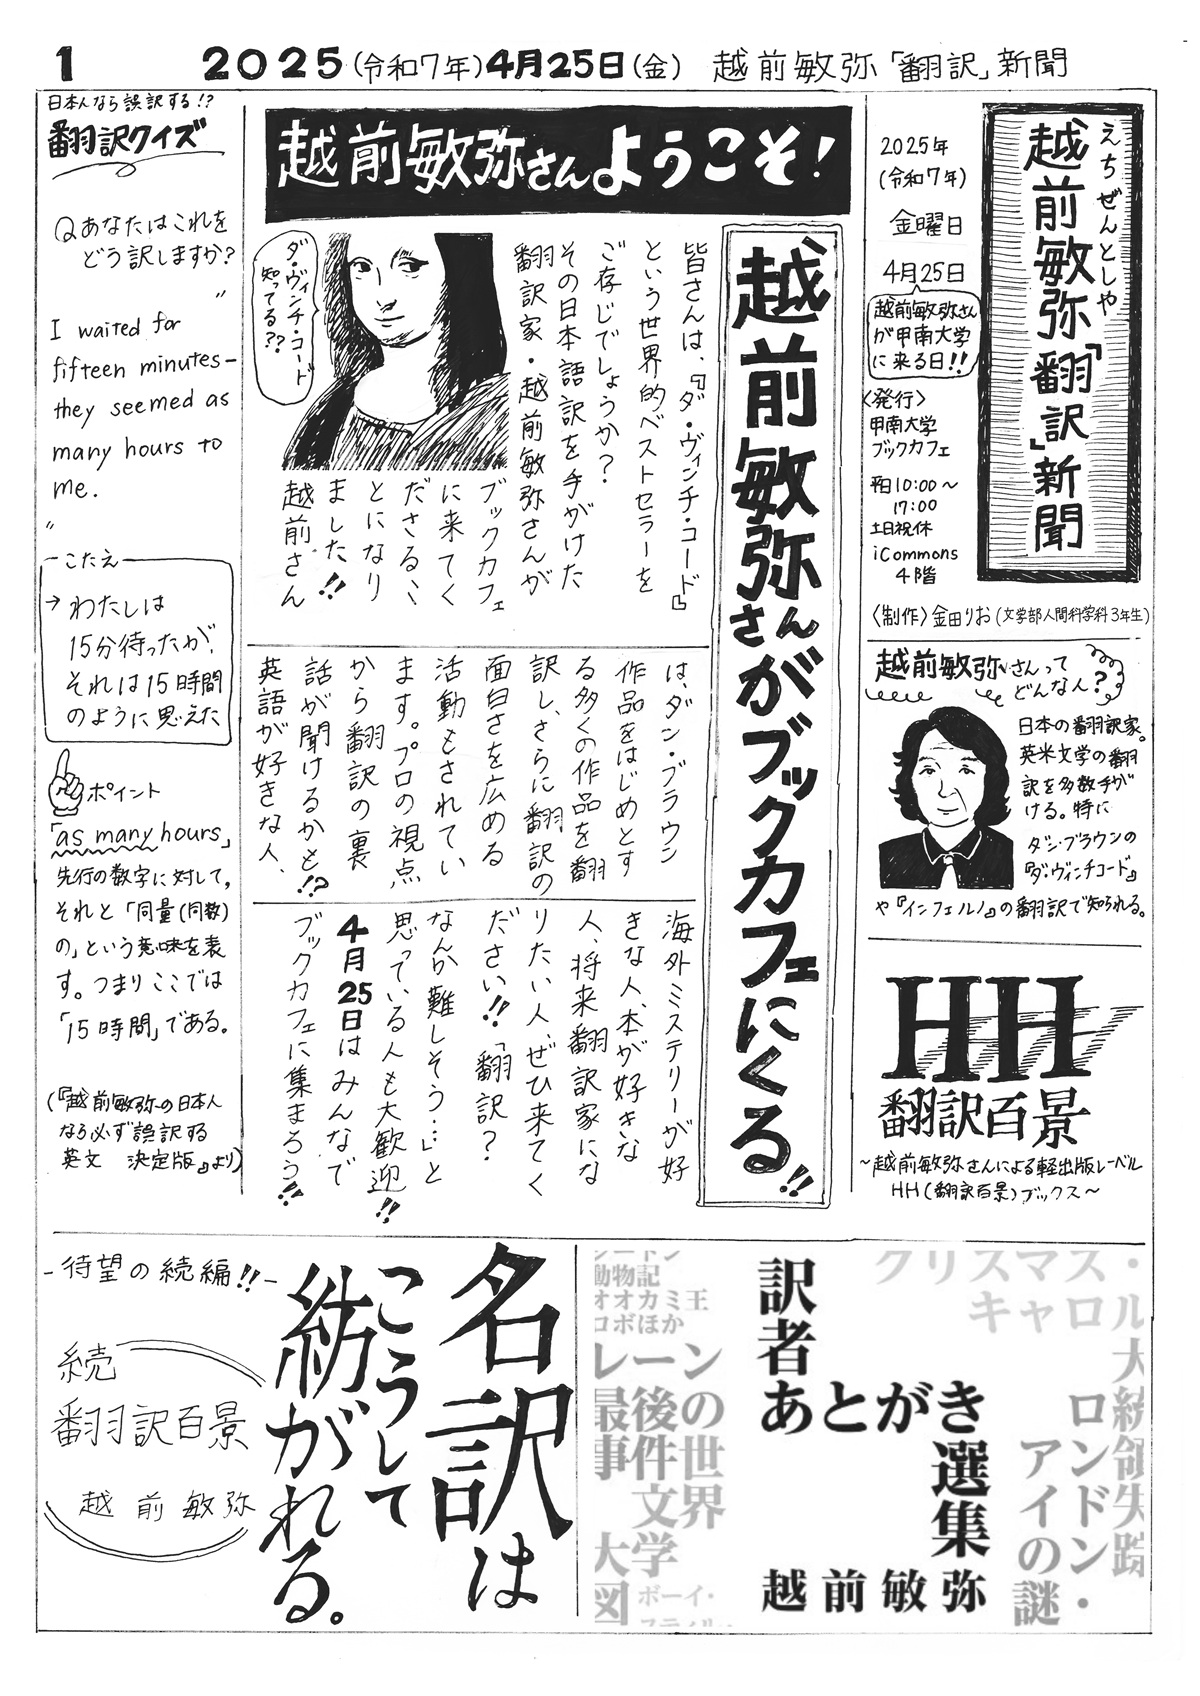 1 2025(令和7年)4月25日(金) 越前敏弥「翻訳」新聞
えちぜんとしや
越前敏弥「翻訳」新聞
2025年
(令和7年)
金曜日
4月25日
越前敏弥さん
が甲南大学
に来る日!!
〈発行〉
甲南大学
ブックカフェ
平日10:00〜
17:00
土日祝休
iCommons
4階
〈制作〉金田りお(文学部人間科学科3年生)
越前敏弥さんって
どんな人?
日本の翻訳家。
英米文学の翻
訳を多数手が
ける。特に
ダン・ブラウンの
『ダ・ヴィンチ・コード』
や『インフェルノ』の翻訳で知られる。
HH
翻訳百景
〜越前敏弥さんによる軽出版レーベル
HH(翻訳百景)ブックス〜
越前敏弥さんようこそ!
越前敏弥さんがブックカフェにくる!!
皆さんは、『ダ・ヴィンチ・コード』
という世界的ベストセラーを
ご存じでしょうか?
その日本語訳を手がけた
翻訳家・越前敏弥さんが
ブックカフェ
に来てく
ださる、、
とになり
ました!!
越前さん
ダ・ヴィンチ・コード
知ってる??
は、ダン・ブラウン
作品をはじめとす
る多くの作品を翻
訳し、さらに翻訳の
面白さを広める
活動もされてい
ます。プロの視点
から翻訳の裏
話が聞けるかも!?
英語が好きな人、
海外ミステリーが好
きな人、本が好きな
人、将来翻訳家にな
りたい人、ぜひ来てく
ださい!!「翻訳?
なんか難しそう…」と
思っている人も大歓迎!!
4月25日はみんなで
ブックカフェに集まろう!!
日本人なら誤訳する!?
翻訳クイズ
Qあなたはこれを
どう訳しますか?
"
I waited for
fifteen minutes-
they seemed as
many hours to
me.
"
こたえ
→わたしは
15分待ったが、
それは15時間
のように思えた
ポイント
「as many hours」
先行の数字に対して、
それと「同量(同数)
の」という意味を表
す。つまりここでは
「15時間」である。
(『越前敏弥の日本人
なら必ず誤訳する
英文 決定版』より)
-待望の続編!!-
続
翻訳百景
越前敏弥
名訳は
こうして
紡がれる。
クリスマス・
キャロル
大統領失踪
ロンドン・
アイの謎
訳者
あとがき
選集
越前敏弥
シートン
動物記
オオカミ王
ロボほか
レーン
最後の
事件
世界
文学
大図
ボーイ・